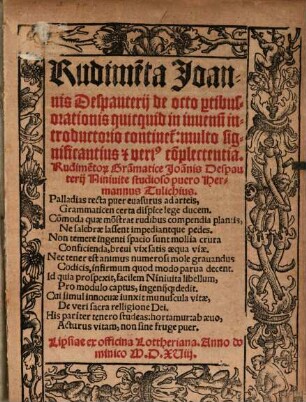 Rudimēta Joan-
nis Despauterij de octo ꝑtibus
orationis quicquid in iuuenū in-
troductorio continet: multo sig-
nificantius & veri⁹ cōplectentia.
Rudimētoꝝ Grāmatice Joānis Despau-
terij Niniuite studioso puero Her-
mannus Tulichius.
Palladias recta puer euasurus ad arteis,
Grammaticen certa dispice lege ducem.
Cōmoda quæ mōstrat rudibus compendia plantis,
Ne salebræ lassent impediantque pedes.
Non tenere ingenti spacio sunt mollia crura
Conficienda, breui vix satis æqua viæ.
Nec tener est animus numerosi mole grauandus
Codicis, infirmum quod modo parua decent.
Id quia prospexit, facilem Niniuita libellum,
Pro modulo captus, ingenijqȝ dedit.
Cui simul innocuæ iunxit munuscula vitæ,
De veri sacra relligione Dei.
His pariter tenero studeas: hortamur: ab æuo,
Acturus vitam, non sine fruge puer.
Lipsiae ex officina Lottheriana. Anno do
minico M.D.XViij.